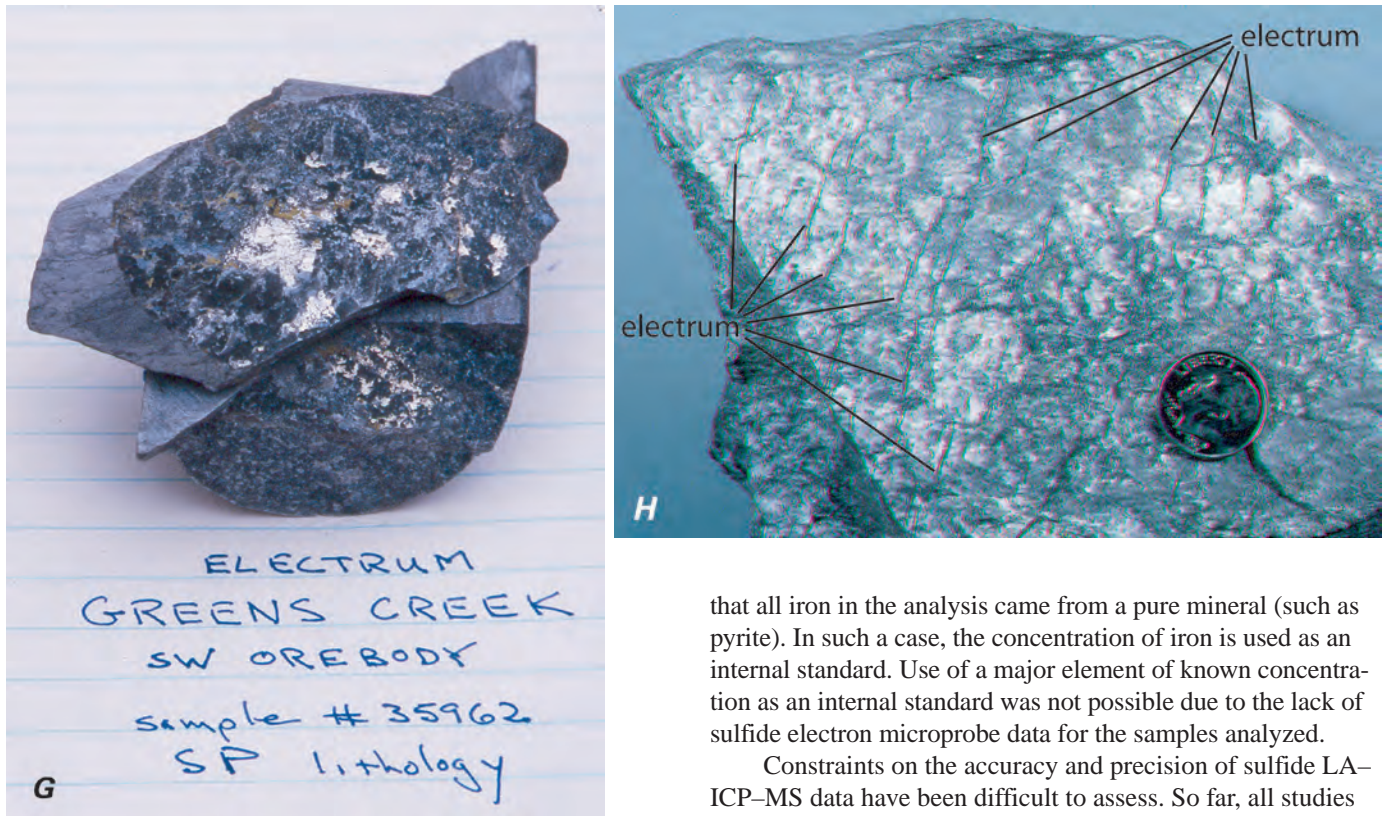 ELECTRUM
GREENS CREEK
SW OREBODY
sample # 35962
SP lithology
G
electrum
electrum
H
that all iron in the analysis came from a pure mineral (such as
pyrite). In such a case, the concentration of iron is used as an
internal standard. Use of a major element of known concentra-
tion as an internal standard was not possible due to the lack of
sulfide electron microprobe data for the samples analyzed.
Constraints on the accuracy and precision of sulfide LA–
ICP–MS data have been difficult to assess. So far, all studies